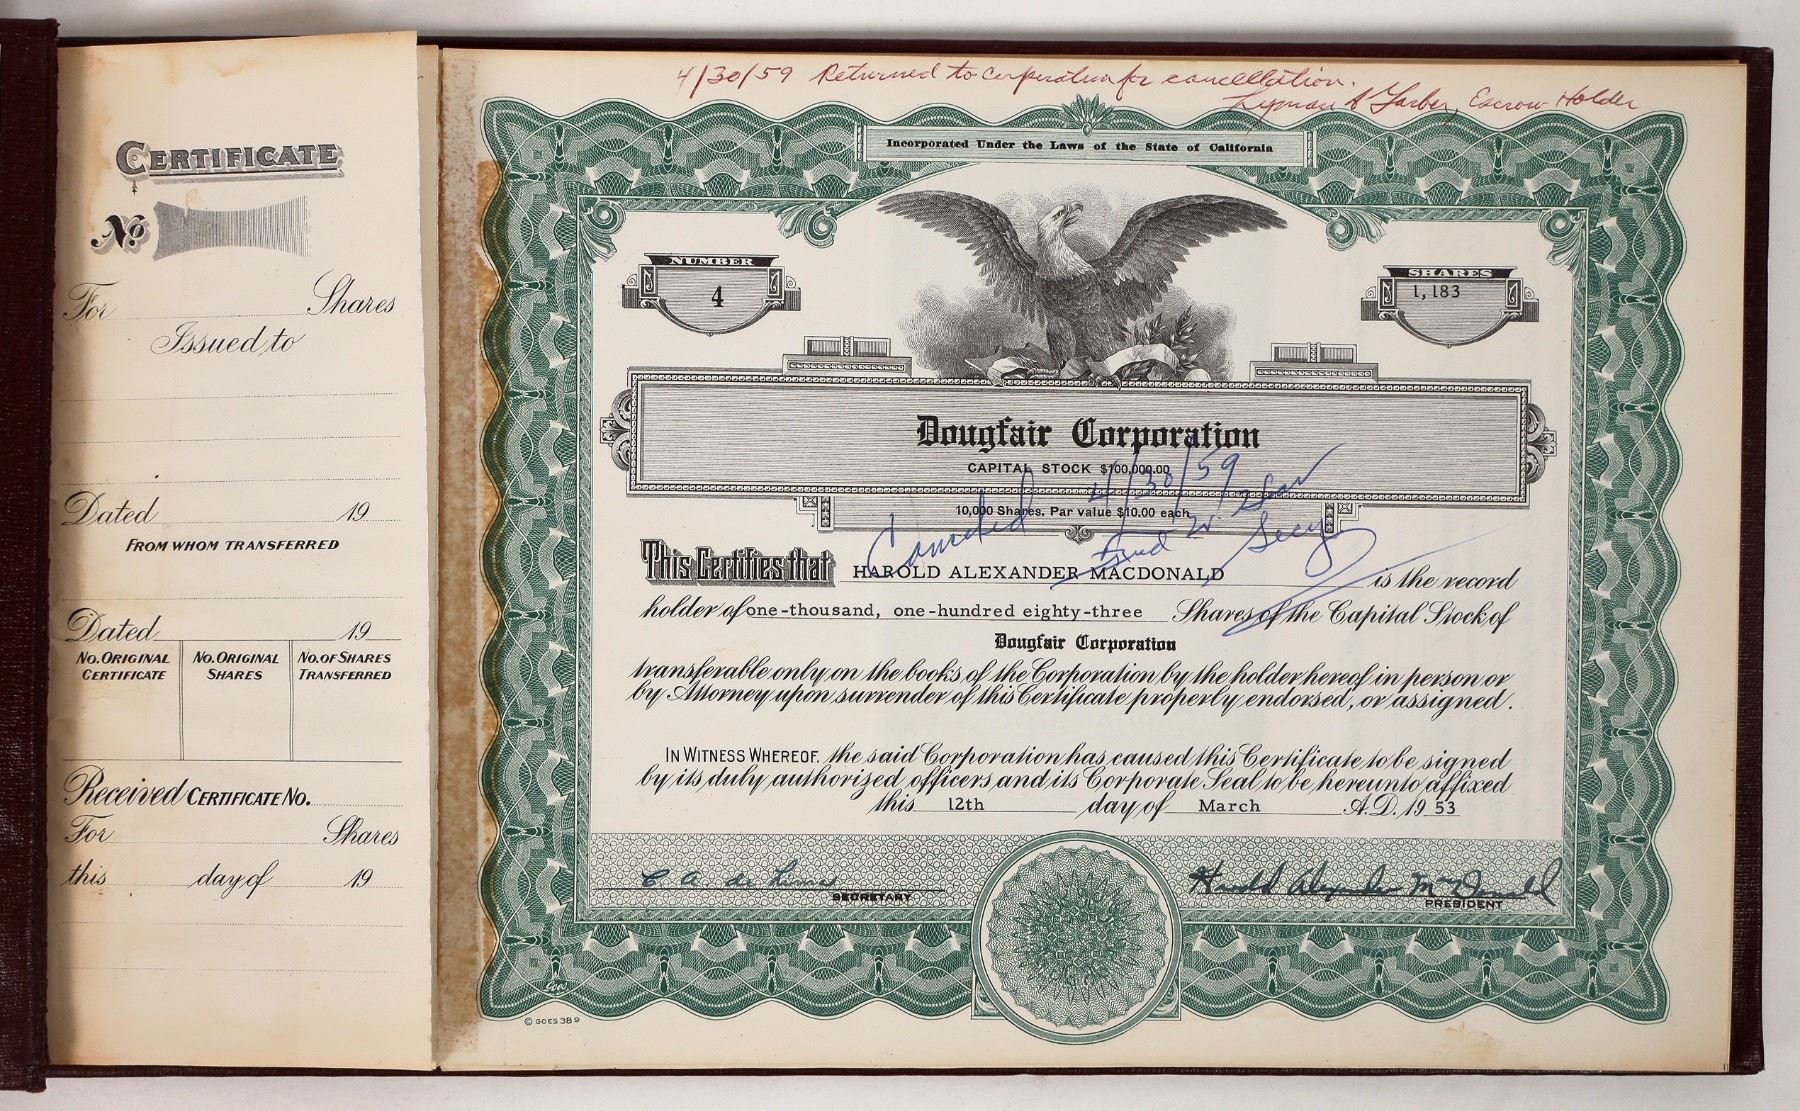 CERTIFICATE
No
For Shares
Issued to
Dated 19
FROM WHOM TRANSFERRED
Dated 19
No. ORIGINAL CERTIFICATE
No. ORIGINAL SHARES
No. OF SHARES TRANSFERRED
Received CERTIFICATE No.
For Shares
this day of 19
4/30/59 Returned to corporation for cancellation.
Lyman A Garber, Escrow Holder
Incorporated Under the Laws of the State of California
NUMBER
4
SHARES
1,183
Dougfair Corporation
CAPITAL STOCK $100,000.00
10,000 Shares. Par value $10.00 each
Canceled 4/30/59
Secy
This Certifies that HAROLD ALEXANDER MACDONALD is the record
holder of one-thousand, one-hundred eighty-three Shares of the Capital Stock of
Dougfair Corporation
transferable only on the books of the Corporation by the holder hereof in person or
by Attorney upon surrender of this Certificate properly endorsed, or assigned.
IN WITNESS WHEREOF, the said Corporation has caused this Certificate to be signed
by its duly authorized officers and its Corporate Seal to be hereunto affixed
this 12th day of March A.D. 19 53
C. A. de Lima
SECRETARY
Harold Alexander McDonald
PRESIDENT
Goes
© GOES 389